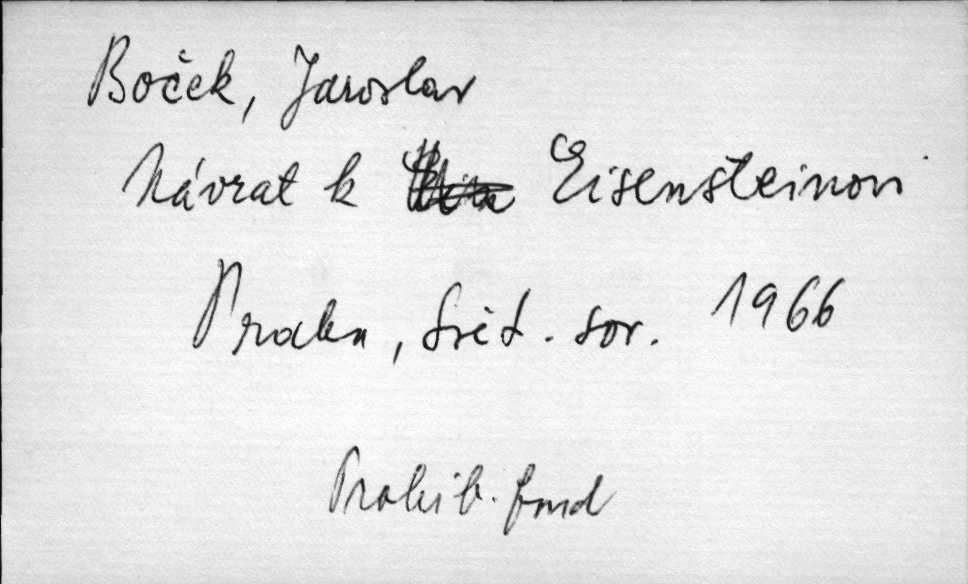 Boček, Jaroslav
Návrat k Eisensteinovi
Praha, Svět. sov. 1966
Prohib. fond